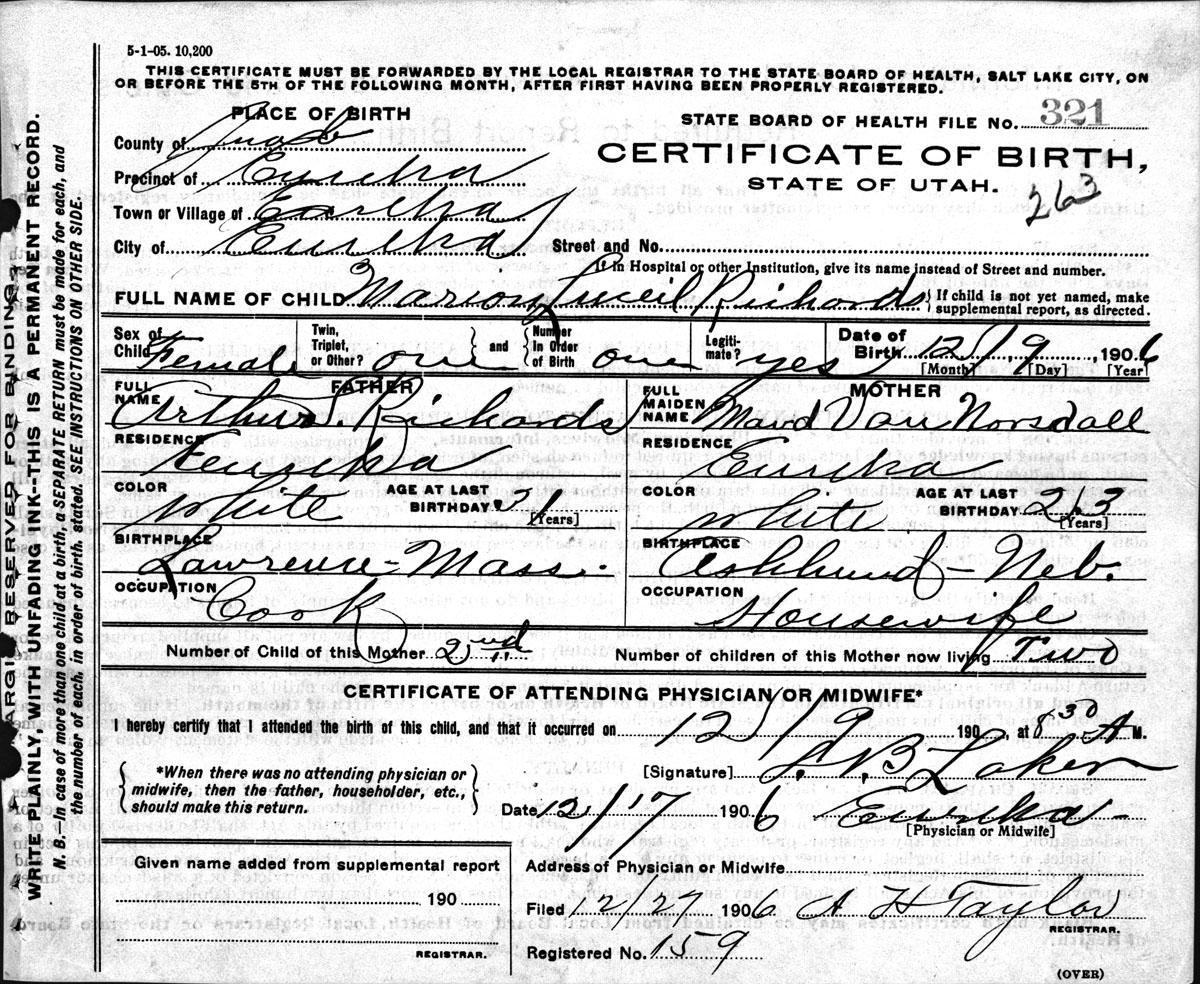 5-1-05. 10,200
THIS CERTIFICATE MUST BE FORWARDED BY THE LOCAL REGISTRAR TO THE STATE BOARD OF HEALTH, SALT LAKE CITY, ON
OR BEFORE THE 5TH OF THE FOLLOWING MONTH, AFTER FIRST HAVING BEEN PROPERLY REGISTERED.
PLACE OF BIRTH
County of Juab
Precinct of Eureka
Town or Village of Eureka
City of Eureka
STATE BOARD OF HEALTH FILE No. 321
CERTIFICATE OF BIRTH,
STATE OF UTAH.
263
Street and No.
If in Hospital or other Institution, give its name instead of Street and number.
FULL NAME OF CHILD Marion Luceil Richards { If child is not yet named, make
supplemental report, as directed.
Sex of Child Female
Twin, Triplet, or Other? one
and
Number In Order of Birth one
Legitimate? yes
Date of Birth 12/19, 1906
[Month] [Day] [Year]
FATHER
FULL NAME Arthur J. Richards
RESIDENCE Eureka
COLOR White AGE AT LAST BIRTHDAY 21 [Years]
BIRTHPLACE Lawrence - Mass.
OCCUPATION Cook
MOTHER
FULL MAIDEN NAME Maud Van Norsdall
RESIDENCE Eureka
COLOR White AGE AT LAST BIRTHDAY 23 [Years]
BIRTHPLACE Ashland - Neb.
OCCUPATION Housewife
Number of Child of this Mother 2nd
Number of children of this Mother now living Two
CERTIFICATE OF ATTENDING PHYSICIAN OR MIDWIFE*
I hereby certify that I attended the birth of this child, and that it occurred on 12/19 190 at 8:30 A M.
{ *When there was no attending physician or
midwife, then the father, householder, etc.,
should make this return. }
[Signature] B Laker
Date 12/17 1906 Eureka -
[Physician or Midwife]
Given name added from supplemental report
190
REGISTRAR.
Address of Physician or Midwife
Filed 12/27 1906 A H Taylor
REGISTRAR.
Registered No. 159
(OVER)
MARGIN RESERVED FOR BINDING.
WRITE PLAINLY, WITH UNFADING INK--THIS IS A PERMANENT RECORD.
N. B.—In case of more than one child at a birth, a SEPARATE RETURN must be made for each, and
the number of each, in order of birth, stated. SEE INSTRUCTIONS ON OTHER SIDE.